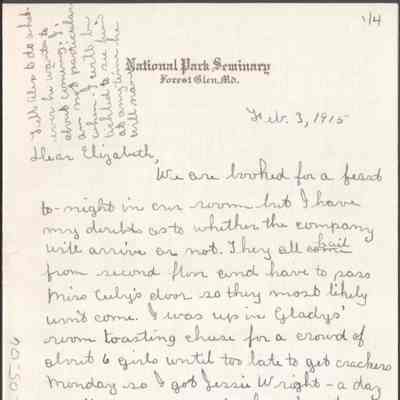 1/4
Tell Alex to do what-
ever he wants to
about coming. I
am not particular
when. I will be
tickled to see him
at any time he
will name.
National Park Seminary
Forest Glen, Md.
Feb. 3, 1915
Dear Elizabeth,
We are booked for a feast
to-night in our room but I have
my doubts as to whether the company
will arrive or not. They all come hail
from second floor and have to pass
Miss Culy's door so they most likely
won't come. I was up in Gladys'
room toasting cheese for a crowd of
about 6 girls until too late to get crackers
Monday so I got Jessie Wright - a day